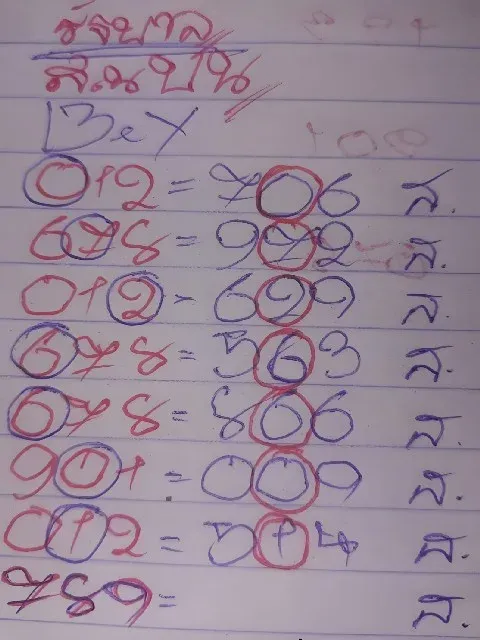 รัฐบาล
สิบบน
BeY
012 = 706 ส.
678 = 972 ส.
012 - 629 ส.
678 = 563 ส.
678 = 806 ส.
901 = 009 ส.
012 = 514 ส.
789 = ส.